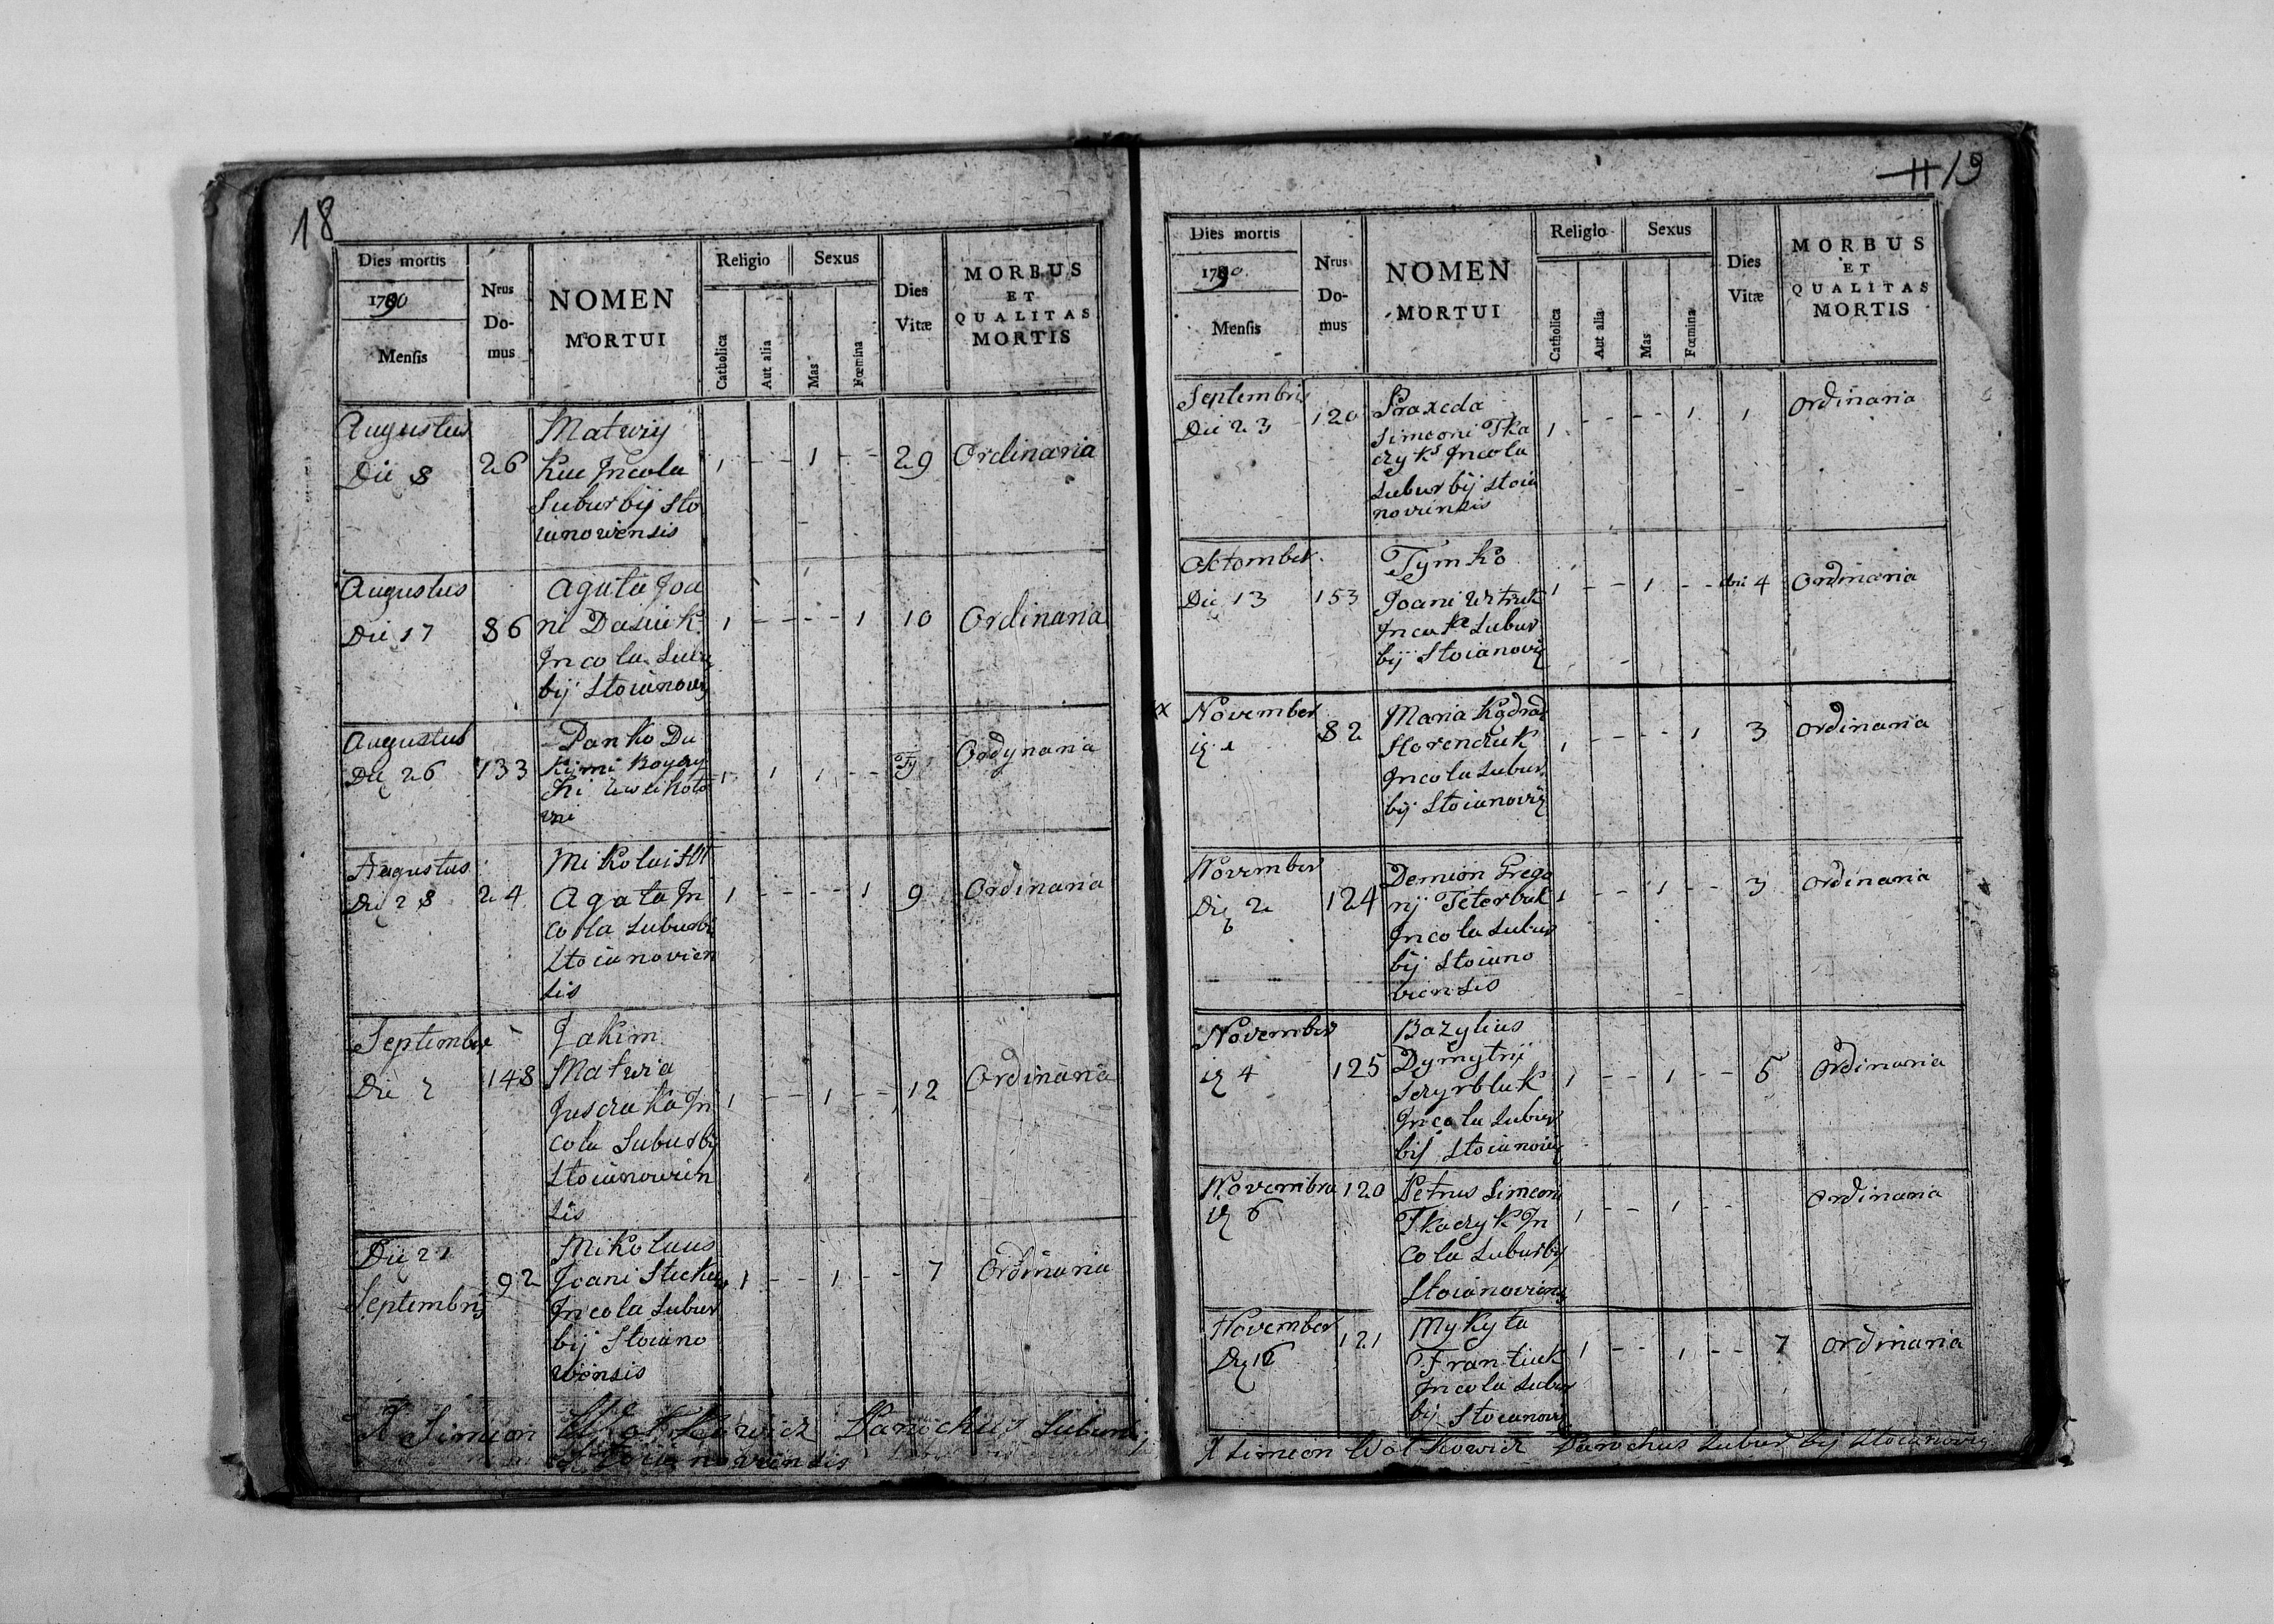 18
Dies mortis
1790
Mensis
Nrus
Do-
mus
NOMEN
MORTUI
Religio
Catholica
Aut alia
Sexus
Mas
Fœmina
Dies
Vitæ
MORBUS
ET
QUALITAS
MORTIS
Augustus
Die 8
26
Matwiy
Kuc Incola
Suburbij Sto
ianowiensis
1 - - 1 - - 29 Ordinaria
Augustus
Die 17
86
Agata Joa
ni Dasiuk
Incola Subu
bij Stoianow
1 - - - - 1 10 Ordinaria
Augustus
Die 26
133
Panko Du
1 1 1 - -
Ordynaria
Augustus
Die 28
24
Mikolai
Agata In
cola Suburbi
Stoianovien
sis
1 - - - - 1 9 Ordinaria
Septembre
Die 2
148
Jakim
Matwia
Juscruka In
cola Suburbij
Stoianowien
sis
1 - - 1 - - 12 Ordinaria
Die 21
Septembris
92
Mikolaus
Joani
Incola Subur
bij Stoiano
wiensis
1 - - 1 - - 7 Ordinaria
X Simeon Wolkowicz Parochus Suburbij
Stoianoviensis
11 19
Dies mortis
1790
Mensis
Nrus
Do-
mus
NOMEN
MORTUI
Religio
Catholica
Aut alia
Sexus
Mas
Fœmina
Dies
Vitæ
MORBUS
ET
QUALITAS
MORTIS
Septembris
Die 23
120
Praxeda
Simeoni Tka
czyk Incola
Suburbij Stoia
noviensis
1 - - - - 1 1 Ordinaria
Oktomber
Die 13
153
Tymko
Joani Witruk
Incola Subur
bij Stoianovi
1 - - 1 - - 4 Ordinaria
x November
82
Maria
Horenczuk
Incola Subur
bij Stoianovi
1 - - - - 1 3 Ordinaria
November
Die 2
124
Demion Grego
rij Teterbuk
Incola Subur
bij Stoiano
viensis
1 - - 1 - - 3 Ordinaria
November
4
125
Bazylius
Dymytrij
Sczyrbluk
Incola Subur
bij Stoianovi
1 - - 1 - - 5 Ordinaria
Novembra
6
120
Petrus Simeoni
Tkaczyk In
cola Suburbij
Stoianoviens
1 - - 1 - - Ordinaria
November
Die 16
121
Mykyta
Frantiuk
Incola Subur
bij Stoianovi
1 - - 1 - - 7 Ordinaria
X Simeon Wolkowicz Parochus Suburbij Stoianovi